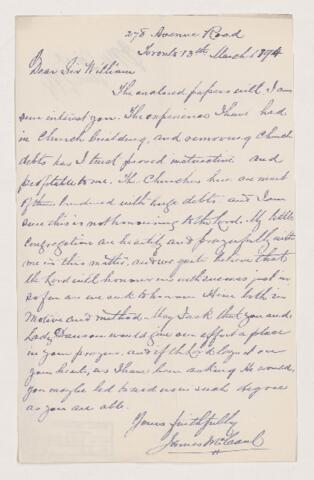 278 Avenue Road
Toronto 13th March 1894
Dear Sir William
The enclosed papers will I am
sure interest you. The experience I have had
in Church building, and removing Church
debts has I trust proved instructive and
profitable to me. The Churches here are most
of them burdened with huge debts, and I am
sure this is not honouring to the Lord. My little
Congregation are heartily and prayerfully with
me in this matter, and we quite believe that
the Lord will honour us with success just in
so far as we seek to honour Him both in
Motive and method. May I ask that you and
Lady Dawson would give our effort a place
in your prayers, and if the Lord lays it on
your hearts, as I have been asking He would,
you may be led to aid us in such degree
as you are able.
Yours faithfully
James McCaul